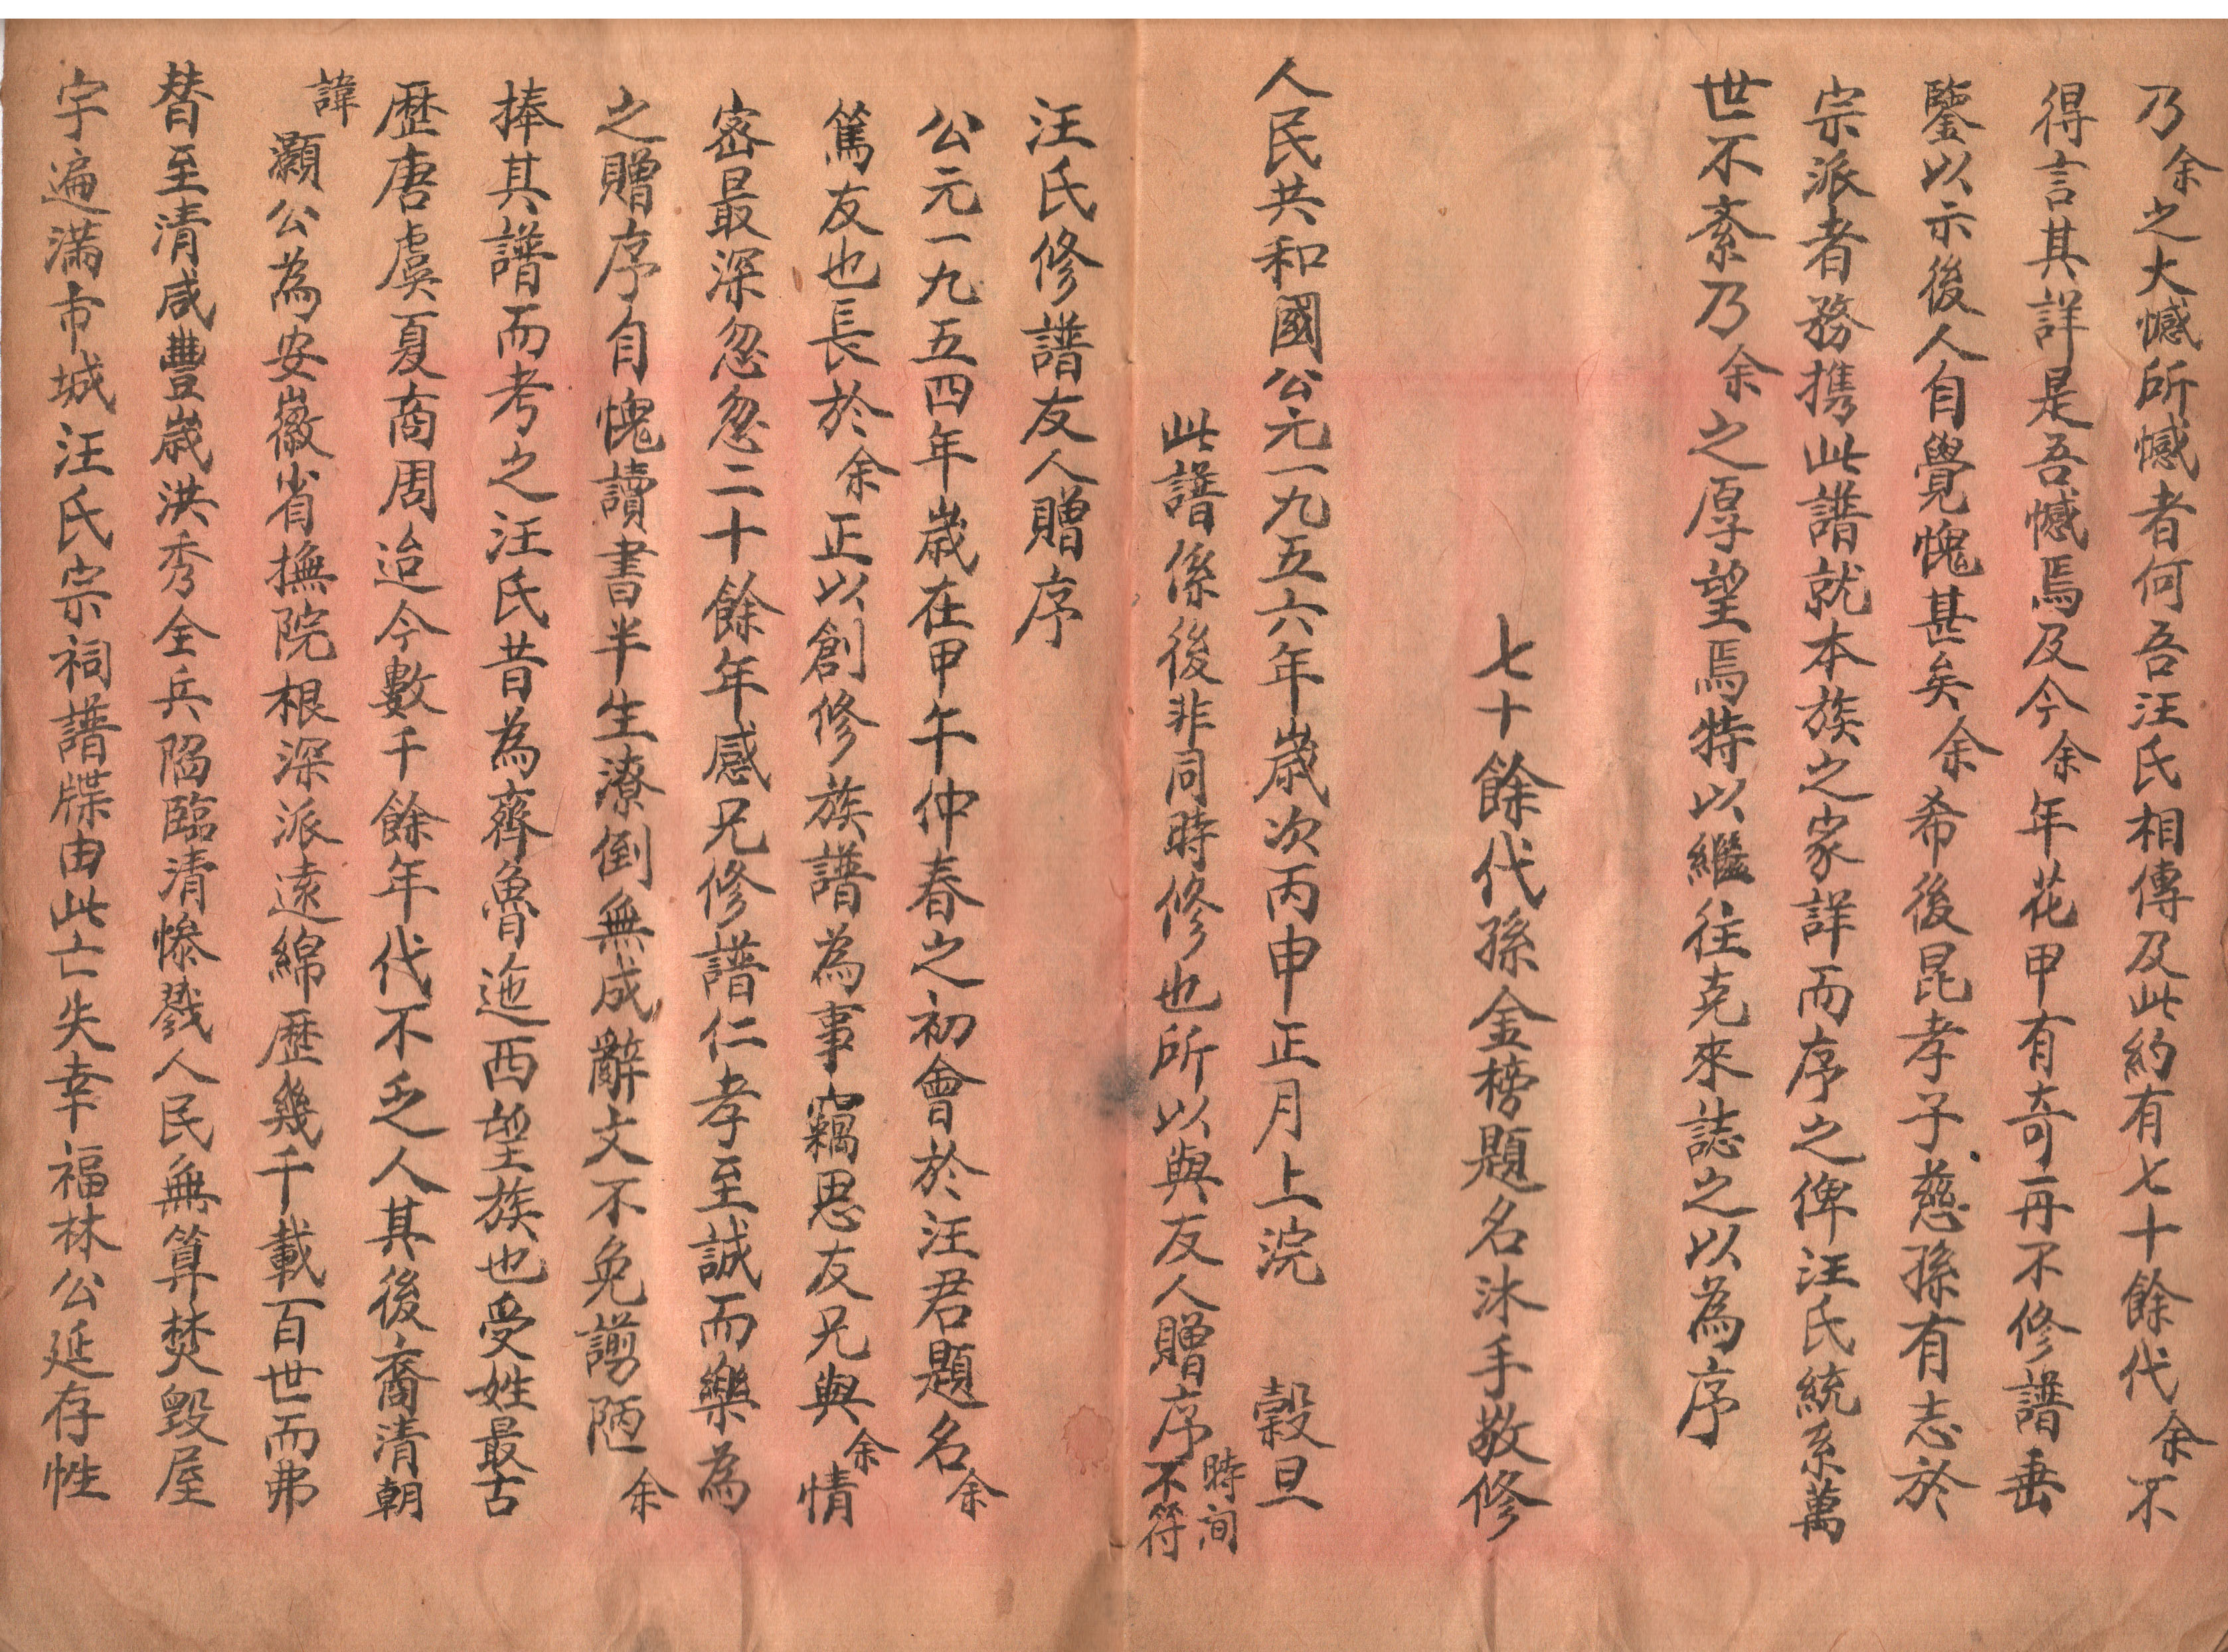 乃余之大憾所憾者何吾汪氏相傳及此約有七十餘代余不
得言其詳是吾憾焉及今余年花甲有奇再不修譜垂
鑒以示後人自覺愧甚矣余希後昆孝子慈孫有志於
宗派者務攜此譜就本族之家詳而序之俾汪氏統系萬
世不紊乃余之厚望焉特以繼往克來誌之以為序
七十餘代孫金榜題名沐手敬修
人民共和國公元一九五六年歲次丙申正月上浣 穀旦
此譜係後非同時修也所以與友人贈序時间不符
汪氏修譜友人贈序
公元一九五四年歲在甲午仲春之初會於汪君題名余
篤友也長於余正以創修族譜為事竊思友兄與余情
密最深忽忽二十餘年感兄修譜仁孝至誠而樂為
之贈序自愧讀書半生潦倒無成辭文不免謭陋余
捧其譜而考之汪氏昔為齊魯迤西望族也受姓最古
歷唐虞夏商周迨今數千餘年代不乏人其後裔清朝
諱灝公為安徽省撫院根深派遠綿歷幾千載百世而弗
替至清咸豐歲洪秀全兵陷臨清慘戮人民無算焚毀屋
宇遍滿市城汪氏宗祠譜牒由此亡失幸福林公延存性